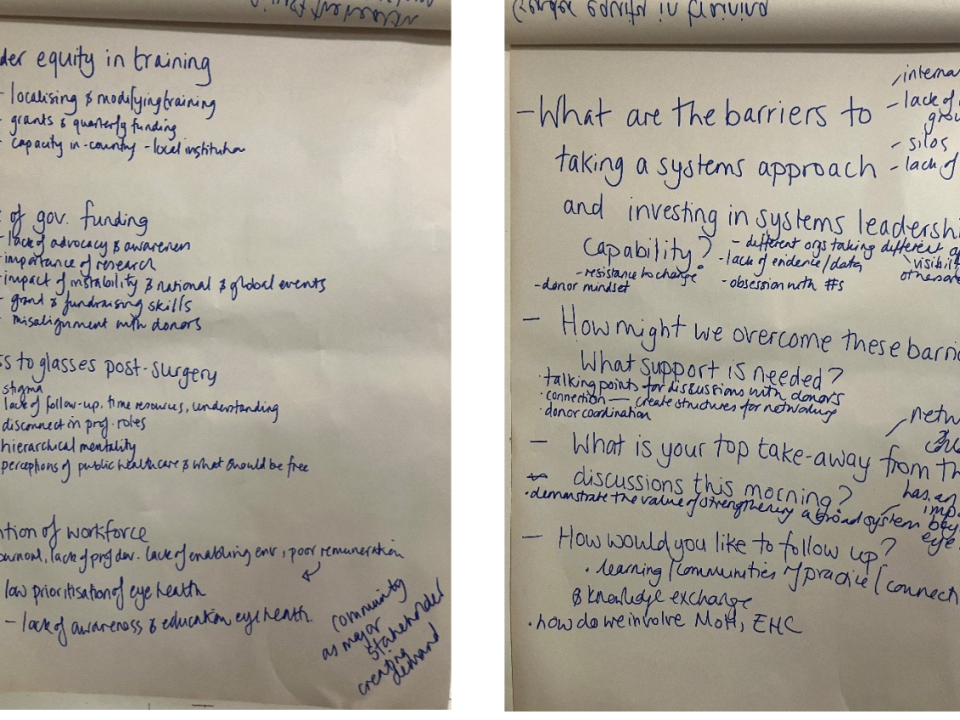 der equity in training
- localising & modifying training
- grants & quarterly funding
- capacity in-country - local institution
of gov. funding
- lack of advocacy & awareness
- importance of research
- impact of instability & national & global events
- grant & fundraising skills
- misalignment with donors
ss to glasses post-surgery
stigma
lack of follow-up, time resources, understanding
disconnect in prof. roles
hierarchical mentality
perceptions of public healthcare & what should be free
ntion of workforce
burnout, lack of prof dev. lack of enabling env, poor remuneration
low prioritisation of eye health
- lack of awareness & education eye health.
community
as major
stakeholder
creating
demand
- What are the barriers to
taking a systems approach
and investing in systems leadershi
capability?
- interna
- lack of
grou
- silos
- lack of
- different orgs taking different a
visibili
- lack of evidence/data
- resistance to change
- donor mindset
- obsession with #s
- How might we overcome these barri
What support is needed?
· talking points for discussions with donors
· connection — create structures for networking
· donor coordination
- What is your top take-away from th
discussions this morning?
netw
has an
imp
· demonstrate the value of strengthening a broad system bey
eye
- How would you like to follow up?
· learning / communities of practice / connecti
& knowledge exchange
· how do we involve MoH, EHC